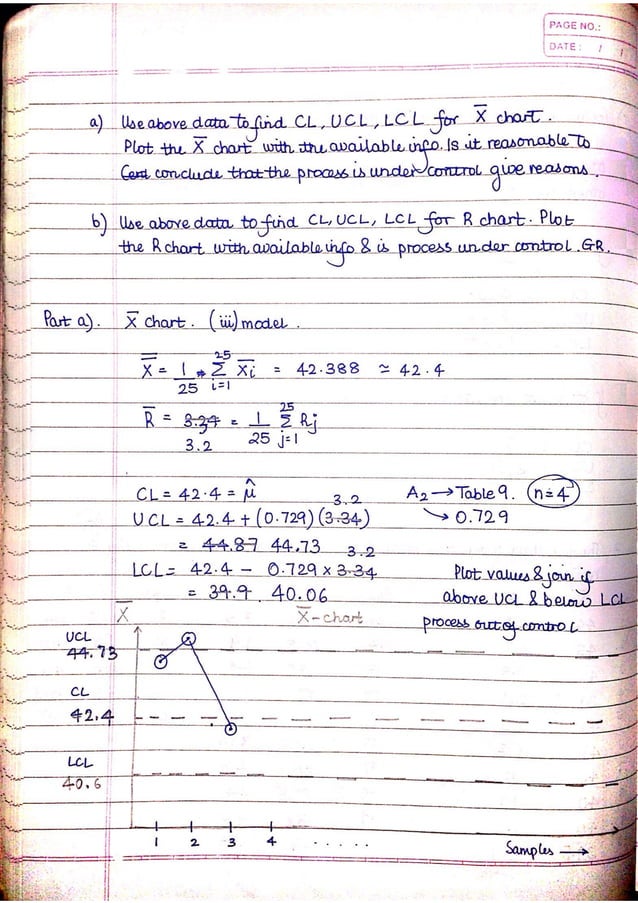 PAGE NO.:
DATE: / /
a) Use above data to find CL, UCL, LCL for X̅ chart.
Plot the X̅ chart with the available info. Is it reasonable to
conclude that the process is under control give reasons.
b) Use above data to find CL, UCL, LCL for R chart. Plot
the R chart with available info & is process under control. GR.
Part a). X̅ chart. (iii) model.
X̿ = 1/25 * Σ_{i=1}^{25} X̅i = 42.388 ≃ 42.4
R̅ = 3.34 = 1/25 Σ_{j=1}^{25} Rj
3.2
CL = 42.4 = μ̂ 3.2 A2 → Table 9. n=4
UCL = 42.4 + (0.729) (3.34) ↳ 0.729
= 44.87 44.73 3.2
LCL = 42.4 - 0.729 x 3.34 Plot values & join if
= 39.9 40.06 above UCL & below LCL
X̅ X̅-chart process out of control
UCL
44.73
CL
42.4
LCL
40.6
1 2 3 4 .....
Samples →